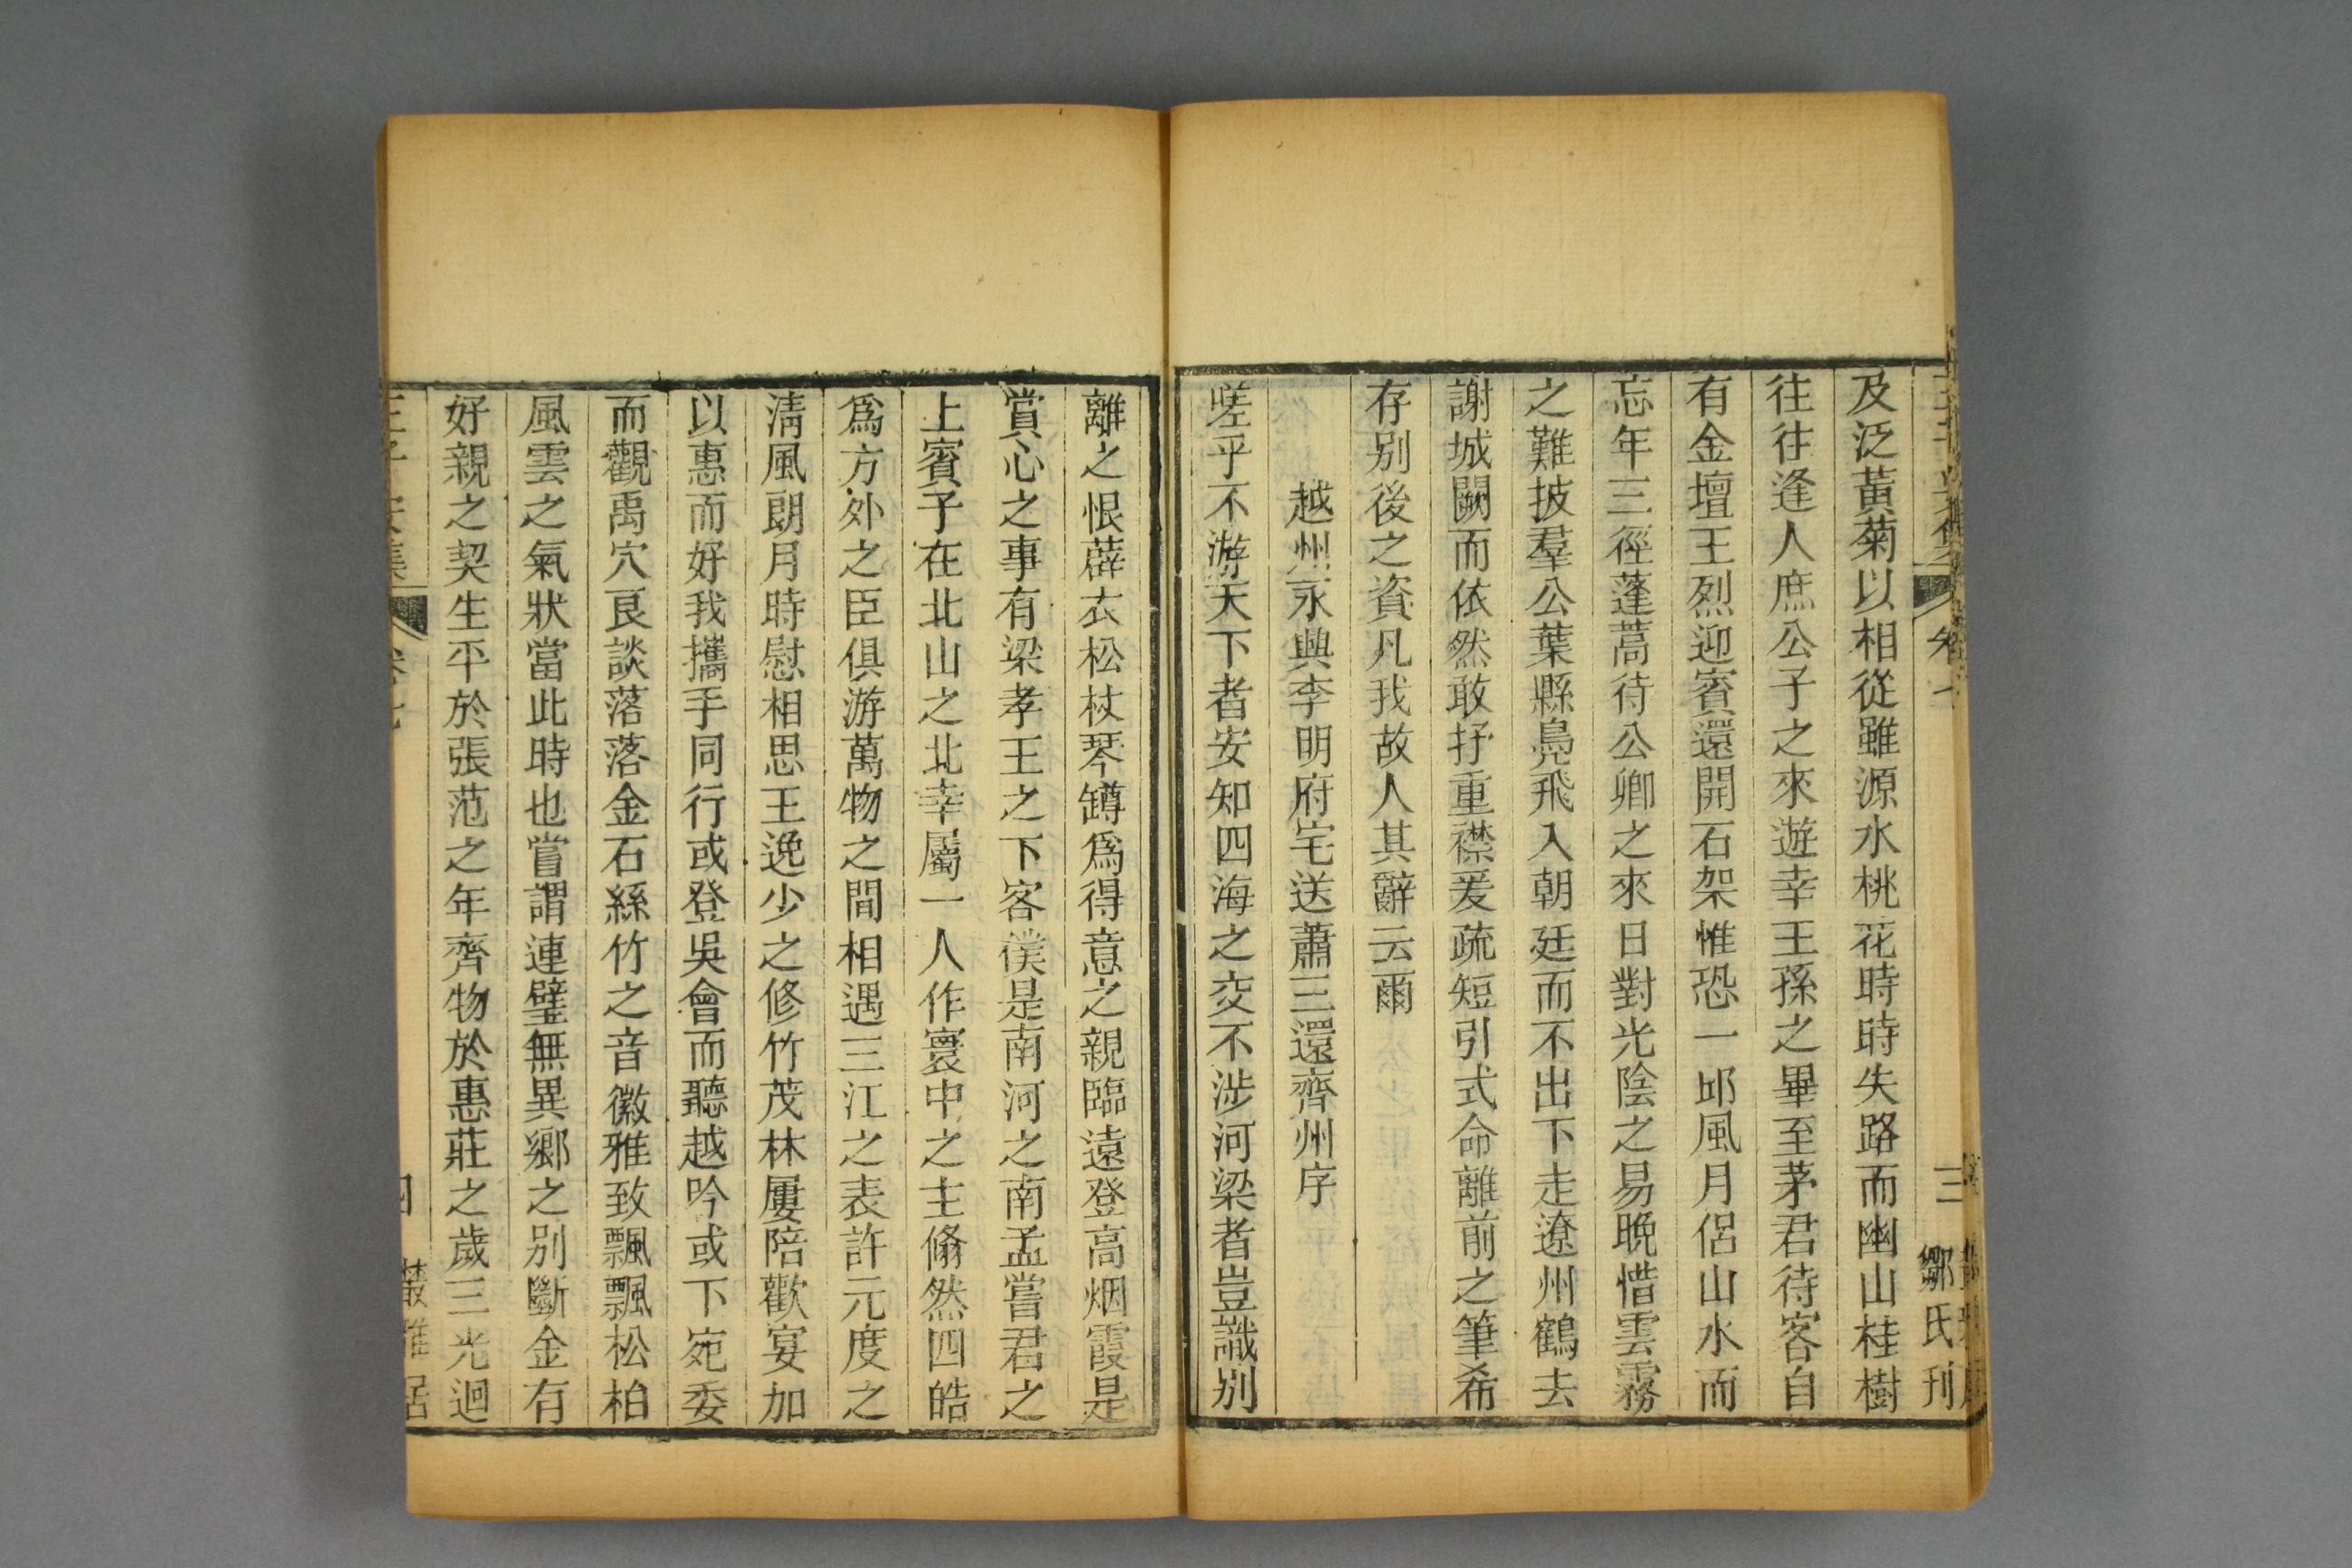 及泛黃菊以相從雖源水桃花時時失路而幽山桂樹
往往逢人庶公子之來遊幸王孫之畢至茅君待客自
有金壇王烈迎賓還開石架惟恐一邱風月侶山水而
忘年三徑蓬蒿待公卿之來日對光陰之易晚惜雲霧
之難披羣公葉縣鳧飛入朝廷而不出下走遼州鶴去
謝城闕而依然敢抒重襟爰疏短引式命離前之筆希
存别後之資凡我故人其辭云爾
越州永興李明府宅送蕭三還齊州序
嗟乎不游天下者安知四海之交不涉河梁者豈識别
離之恨薜衣松杖琴罇爲得意之親臨遠登高烟霞是
賞心之事有梁孝王之下客僕是南河之南孟嘗君之
上賓子在北山之北幸屬一人作寰中之主翛然四皓
爲方外之臣俱游萬物之間相遇三江之表許元度之
淸風朗月時慰相思王逸少之修竹茂林屢陪歡宴加
以惠而好我攜手同行或登吳會而聽越吟或下宛委
而觀禹穴良談落落金石絲竹之音徽雅致飄飄松柏
風雲之氣狀當此時也嘗謂連璧無異鄉之别斷金有
好親之契生平於張范之年齊物於惠莊之歲三光迴
三
鄒氏刊